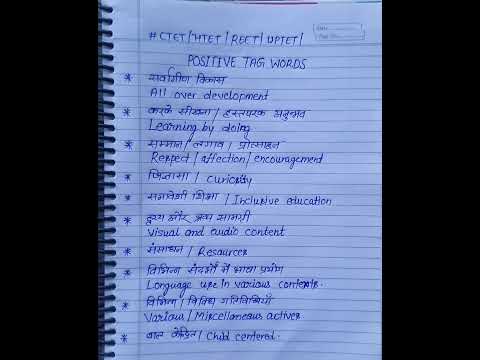 # CTET | HTET | REET | UPTET |
POSITIVE TAG WORDS
* सर्वांगीण विकास
All over development
* करके सीखना / हस्तपरक अनुभव
Learning by doing
* सम्मान / लगाव / प्रोत्साहन
Respect / affection / encouragement
* जिज्ञासा / curiosity
* समावेशी शिक्षा / Inclusive education
* दृश्य और श्रव्य सामग्री
Visual and audio content
* संसाधन / Resources
* विभिन्न संदर्भों में भाषा प्रयोग
Language use in various contexts.
* विभिन्न / विविध गतिविधियाँ
Various / Miscellaneous actives
* बाल केन्द्रित / Child centered.